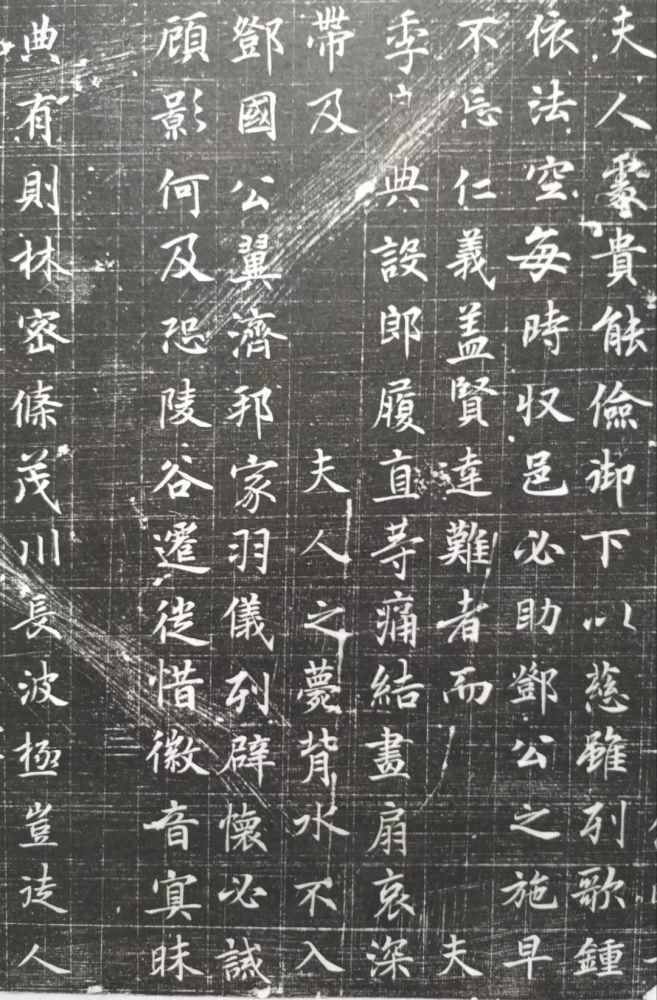 夫人處貴能儉御下以慈雖列歌鍾
依法空每時収邑必助鄧公之施早
不忘仁義盖賢達難者而 夫
季 典設郎履直等痛結畫扇哀深
帶及 夫人之薨背水不入
鄧國公翼濟邦家羽儀列辟懷必誠
顧影何及恐陵谷遷徙惜徽音㝠昧
典有則林密條茂川長波極豈徒人